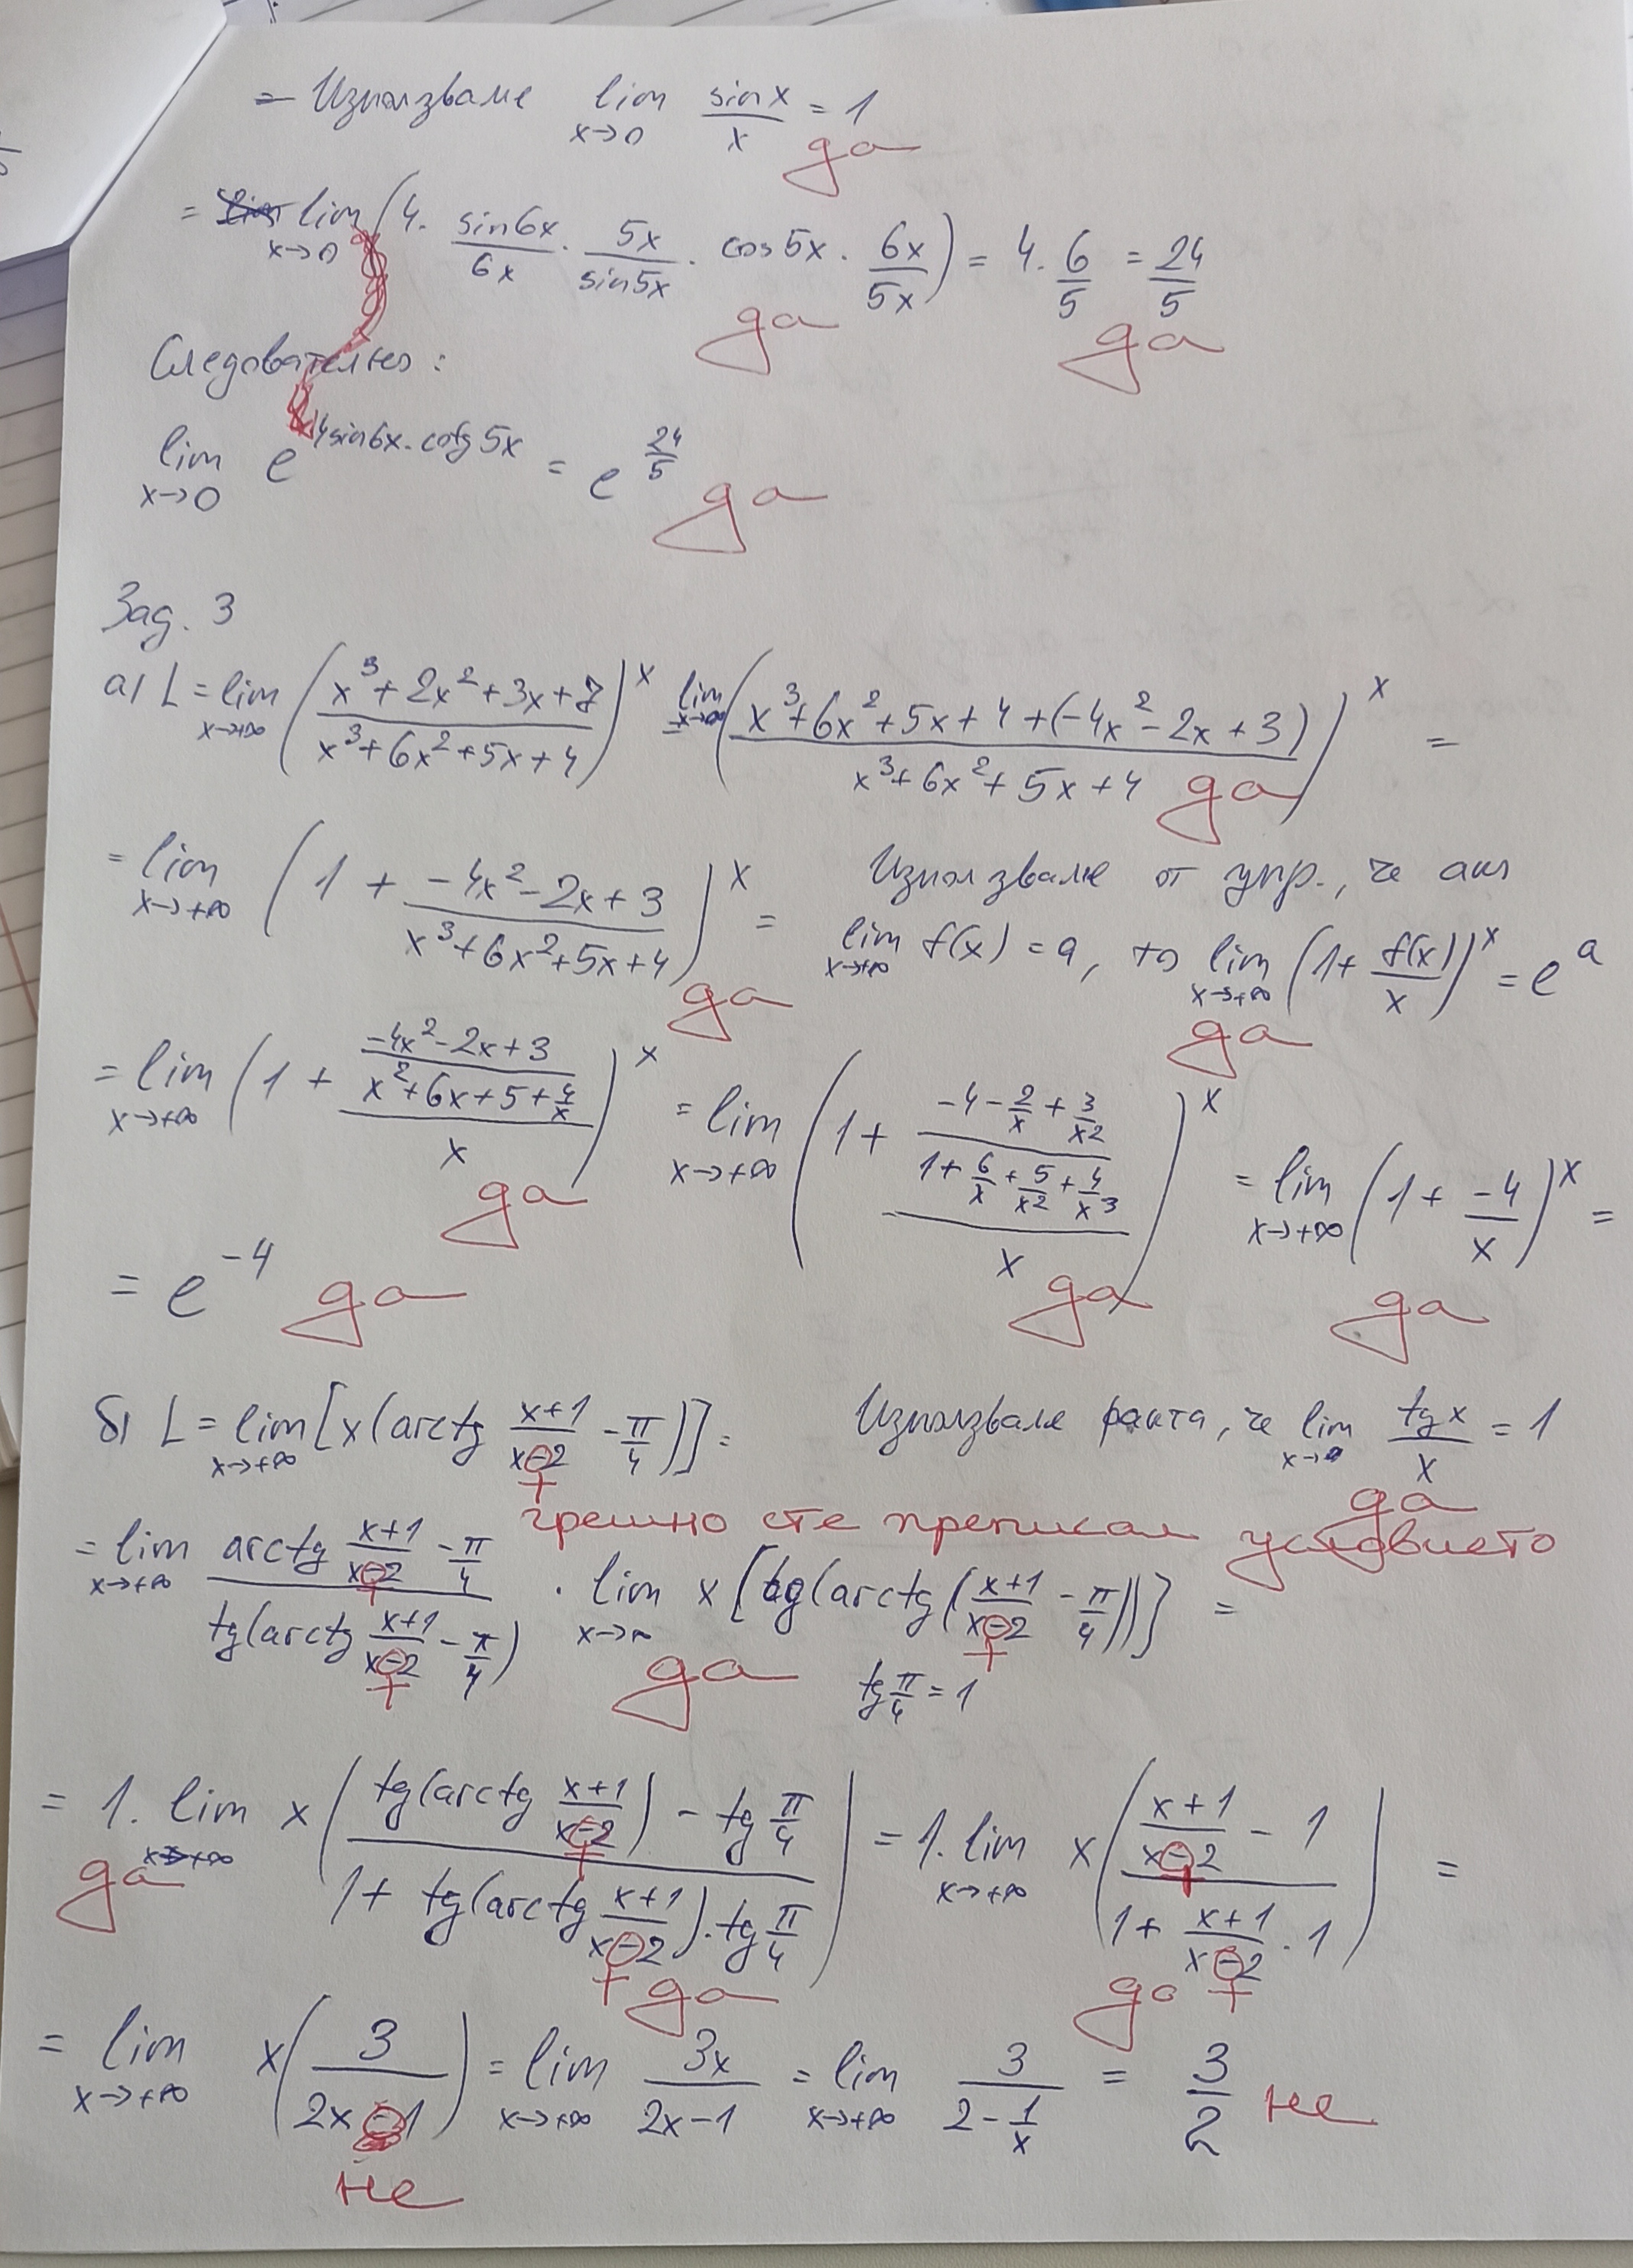 = Използваме lim x→0 sinx/x = 1
да
= lim x→0 (4. sin6x/6x . 5x/sin5x . cos5x . 6x/5x) = 4. 6/5 = 24/5
да да
Следователно:
lim x→0 e^(4sin6x.cotg5x) = e^(24/5)
да
Зад. 3
а) L = lim x→+∞ ((x³+2x²+3x+7)/(x³+6x²+5x+4))^x = lim x→+∞ ((x³+6x²+5x+4+(-4x²-2x+3))/(x³+6x²+5x+4))^x =
да
= lim x→+∞ (1 + (-4x²-2x+3)/(x³+6x²+5x+4))^x = Използваме от упр., че ако
да
lim x→+∞ f(x) = a, то lim x→+∞ (1+ f(x)/x)^x = e^a
да
= lim x→+∞ (1 + ((-4x²-2x+3)/(x²+6x+5+4/x))/x)^x = lim x→+∞ (1+ ((-4-2/x+3/x2)/(1+6/x+5/x2+4/x3))/x)^x = lim x→+∞ (1+ -4/x)^x =
да да да
= e^-4 да
б) L = lim x→+∞ [x(arctg (x+1)/(x-2) - π/4)] = Използваме факта, че lim x→0 tgx/x = 1
+ да
грешно сте преписал условието
= lim x→+∞ (arctg (x+1)/(x-2) - π/4)/(tg(arctg (x+1)/(x-2) - π/4)) . lim x→∞ x[tg(arctg((x+1)/(x-2) - π/4))] =
+ + +
да tg π/4 = 1
= 1. lim x→+∞ x((tg(arctg (x+1)/(x-2)) - tg π/4)/(1+ tg(arctg (x+1)/(x-2)).tg π/4)) = 1. lim x→+∞ x(((x+1)/(x-2) - 1)/(1+ (x+1)/(x-2) . 1)) =
+ + + +
да да да
= lim x→+∞ x(3/(2x-1)) = lim x→+∞ 3x/(2x-1) = lim x→+∞ 3/(2-1/x) = 3/2 не
не